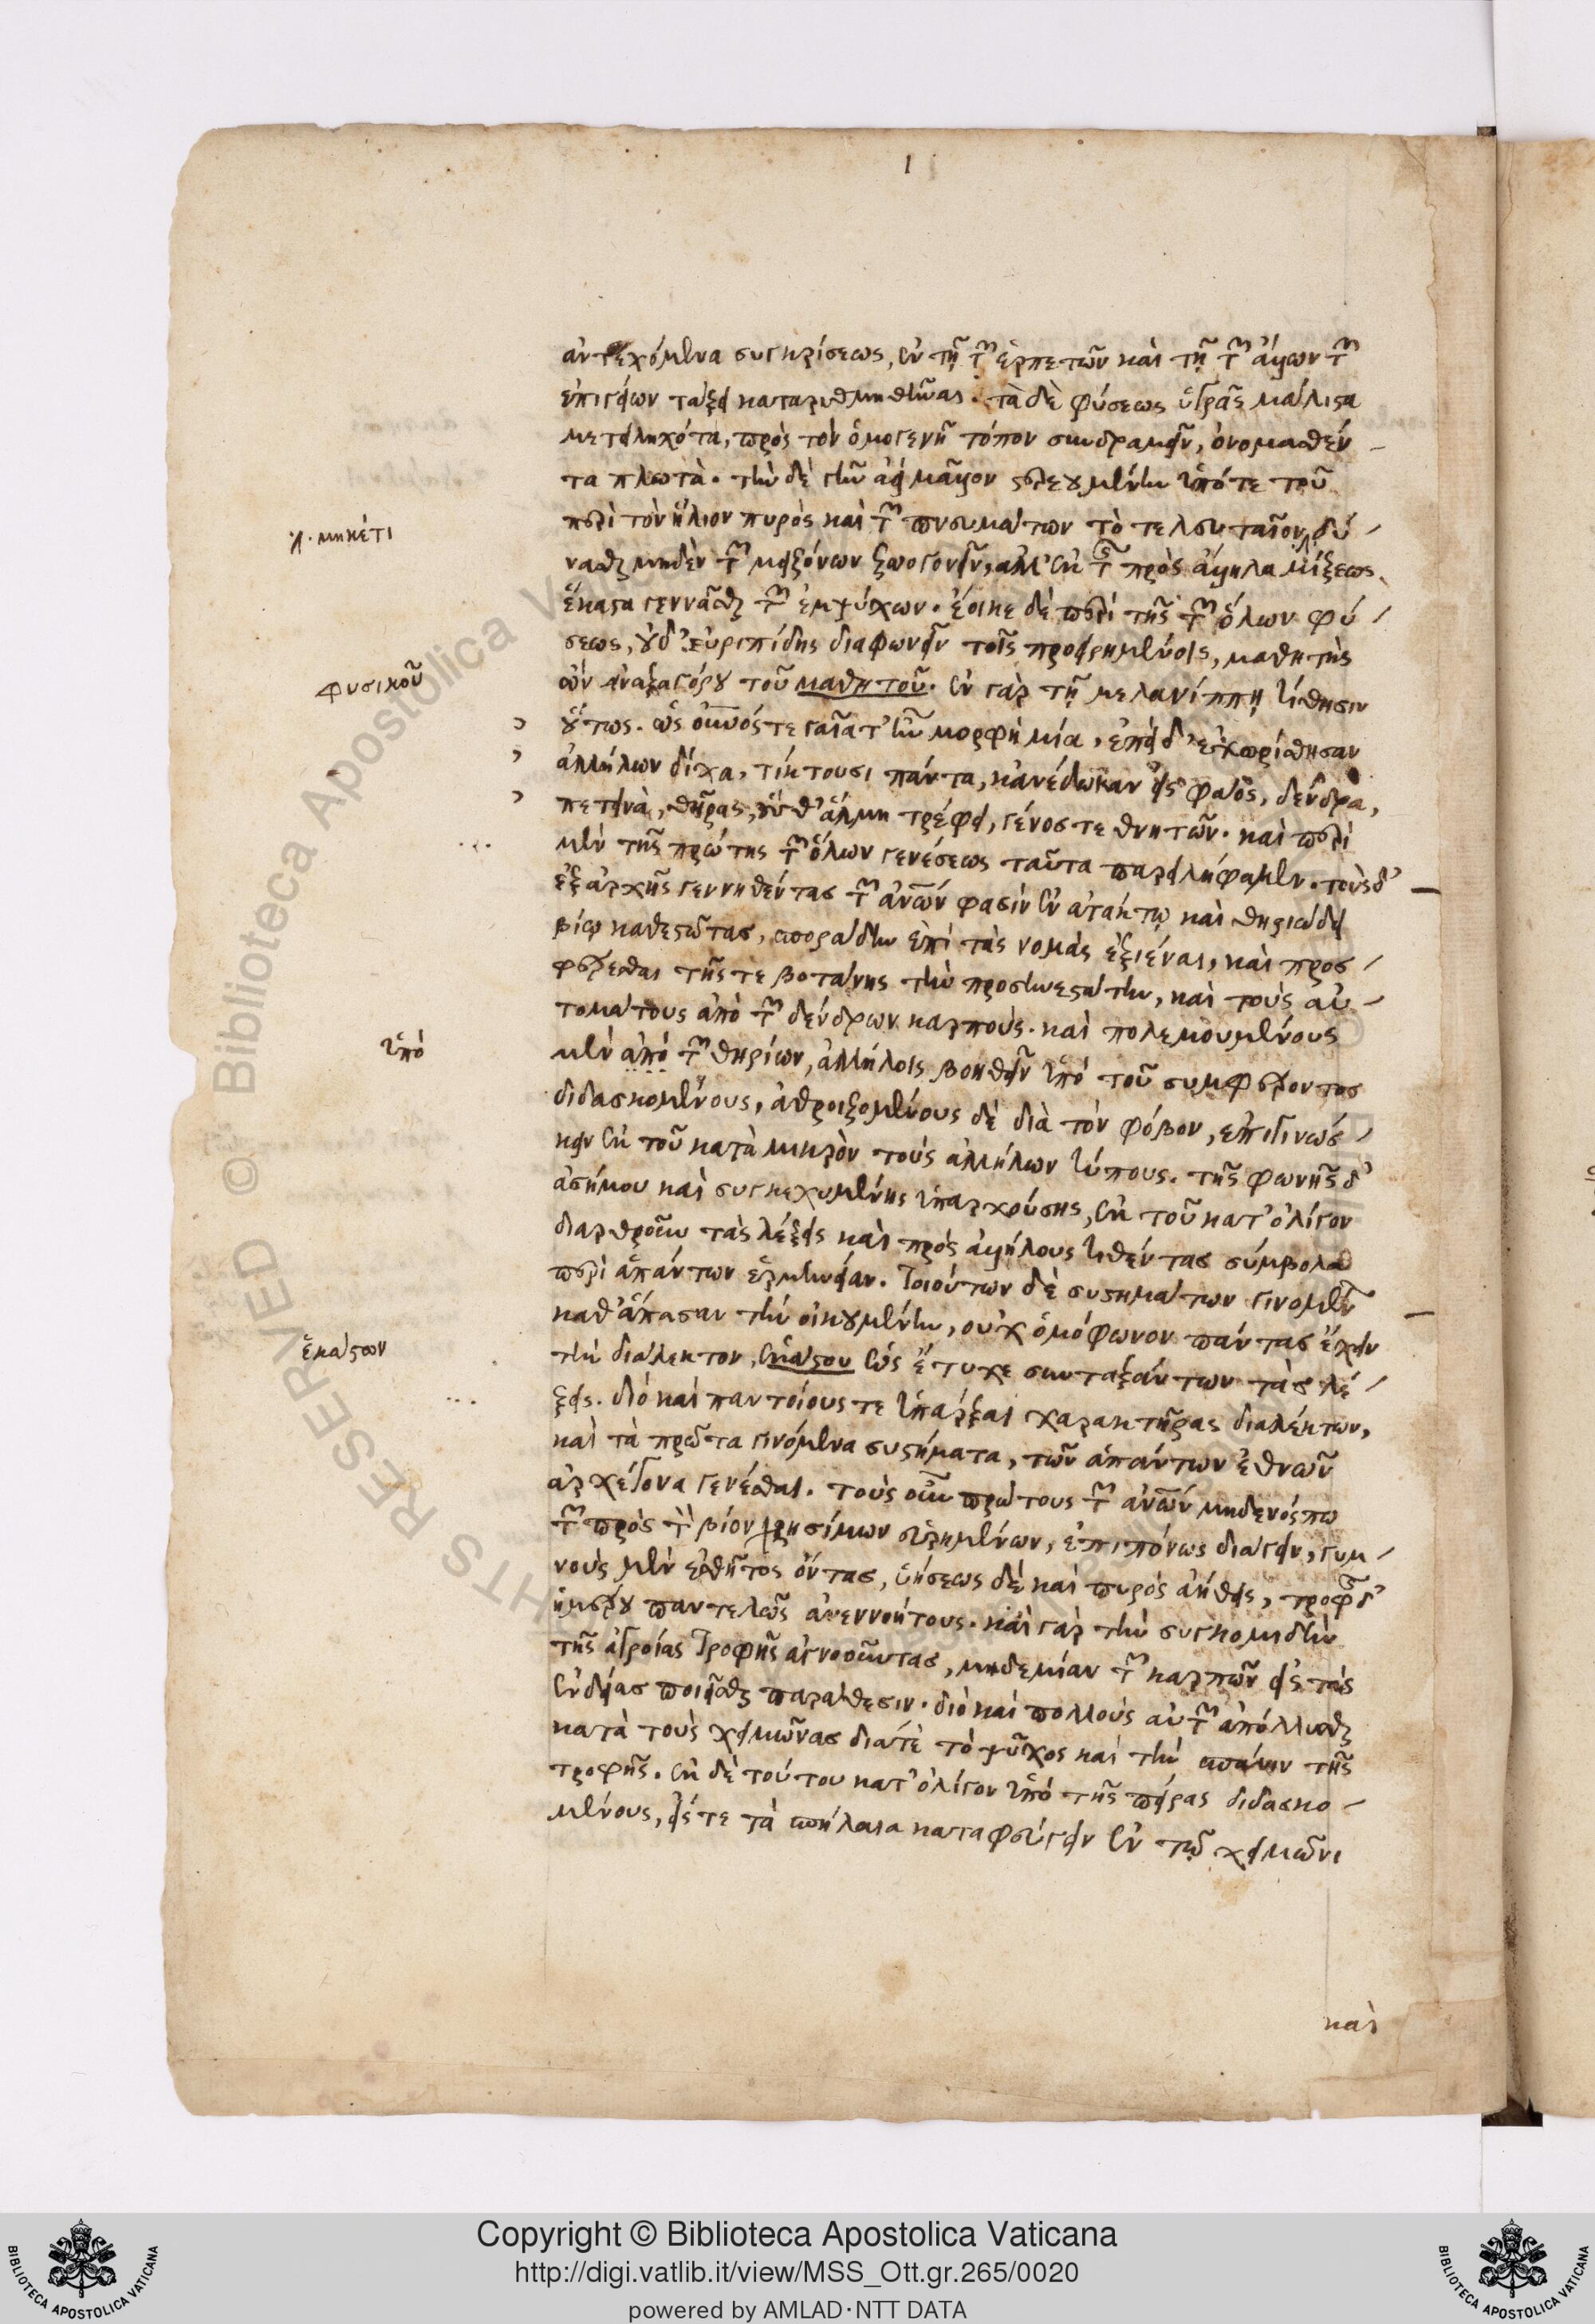 1
ἀντεχόμενα συγκρίσεως, ἐν τῇ τῶν ἑρπετῶν καὶ τῇ τῶν ἄλλων τῶν
ἐπιγείων τάξει καταριθμηθῆναι. τὰ δὲ φύσεως ὑγρᾶς μάλιστα
μετειληχότα, πρὸς τὸν ὁμογενῆ τόπον συνδραμεῖν, ὀνομασθέν-
τα πλωτά. τὴν δὲ γῆν ἀεὶ μᾶλλον στερεουμένην ὑπό τε τοῦ
περὶ τὸν ἥλιον πυρὸς καὶ τῶν πνευμάτων τὸ τελευταῖον, δύ-
λ. μηκέτι
νασθαι μηδὲν τῶν μειζόνων ζωογονεῖν, ἀλλ' ἐκ τῆς πρὸς ἄλληλα μίξεως
ἕκαστα γεννᾶσθαι τῶν ἐμψύχων. ἔοικε δὲ περὶ τῆς τῶν ὅλων φύ-
σεως, οὐδ' εὐριπίδης διαφωνεῖν τοῖς προειρημένοις, μαθητὴς
ὢν ἀναξαγόρου τοῦ μαθητοῦ. ἐν γὰρ τῇ μελανίππῃ τίθησιν
φυσικοῦ
οὕτως. ὡς οὐρανός τε γαῖα τ' ἦν μορφὴ μία, ἐπεὶ δ' ἐχωρίσθησαν
ἀλλήλων δίχα, τίκτουσι πάντα, κἀνέδωκαν εἰς φάος, δένδρα,
πετεινά, θῆρας, οὕς θ' ἅλμη τρέφει, γένος τε θνητῶν. καὶ περὶ
μὲν τῆς πρώτης τῶν ὅλων γενέσεως ταῦτα παρειλήφαμεν. τοὺς δ'
ἐξ ἀρχῆς γεννηθέντας τῶν ἀνθρώπων φασὶν ἐν ἀτάκτῳ καὶ θηριώδει
βίῳ καθεστῶτας, σποράδην ἐπὶ τὰς νομὰς ἐξιέναι, καὶ προσ-
φέρεσθαι τῆς τε βοτάνης τὴν προσηνεστάτην, καὶ τοὺς αὐ-
τομάτους ἀπὸ τῶν δένδρων καρπούς. καὶ πολεμουμένους
μὲν ἀπὸ τῶν θηρίων, ἀλλήλοις βοηθεῖν ὑπὸ τοῦ συμφέροντος
ὑπό
διδασκομένους, ἀθροιζομένους δὲ διὰ τὸν φόβον, ἐπιγινώσ-
κειν ἐκ τοῦ κατὰ μικρὸν τοὺς ἀλλήλων τύπους. τῆς φωνῆς δ'
ἀσήμου καὶ συγκεχυμένης ὑπαρχούσης, ἐκ τοῦ κατ' ὀλίγον
διαρθροῦν τὰς λέξεις καὶ πρὸς ἀλλήλους τιθέντας σύμβολα
περὶ ἁπάντων ἑρμηνείαν. τοιούτων δὲ συστημάτων γινομένων
καθ' ἅπασαν τὴν οἰκουμένην, οὐχ ὁμόφωνον πάντας ἔχειν
τὴν διάλεκτον, ἑκάστου ὡς ἔτυχε συνταξάντων τὰς λέ-
ἑκάστων
ξεις. διὸ καὶ παντοίους τε ὑπάρξαι χαρακτῆρας διαλέκτων,
καὶ τὰ πρῶτα γινόμενα συστήματα, τῶν ἁπάντων ἐθνῶν
ἀρχέγονα γενέσθαι. τοὺς οὖν πρώτους τῶν ἀνθρώπων μηδενός πω
τῶν πρὸς τὸν βίον χρησίμων εὑρημένων, ἐπιπόνως διάγειν, γυμ-
νοὺς μὲν ἐσθῆτος ὄντας, οἰκήσεως δὲ καὶ πυρὸς ἀήθεις, τροφῆς δ'
ἡμέρου παντελῶς ἀνεννοήτους. καὶ γὰρ τὴν συγκομιδὴν
τῆς ἀγροίας τροφῆς ἀγνοοῦντας, μηδεμίαν τῶν καρπῶν εἰς τὰς
ἐνδείας ποιεῖσθαι παράθεσιν. διὸ καὶ πολλοὺς αὐτῶν ἀπόλλυσθαι
κατὰ τοὺς χειμῶνας διά τε τὸ ψῦχος καὶ τὴν σπάνιν τῆς
τροφῆς. ἐκ δὲ τούτου κατ' ὀλίγον ὑπὸ τῆς πείρας διδασκο-
μένους, εἴς τε τὰ σπήλαια καταφεύγειν ἐν τῷ χειμῶνι
καὶ
Copyright © Biblioteca Apostolica Vaticana
http://digi.vatlib.it/view/MSS_Ott.gr.265/0020
powered by AMLAD·NTT DATA
BIBLIOTECA APOSTOLICA VATICANA
BIBLIOTECA APOSTOLICA VATICANA